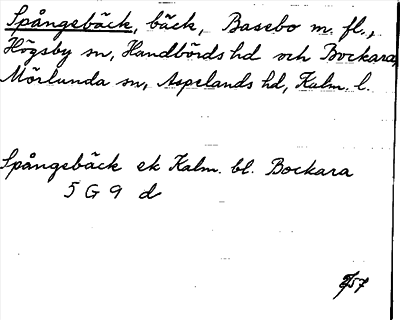 Spångebäck, bäck, Basebo m. fl.,
Högsby sn, Handbörds hd och Bockara,
Mörlunda sn, Aspelands hd, Kalm. l.
Spångebäck ek Kalm. bl. Bockara
5 G 9 d